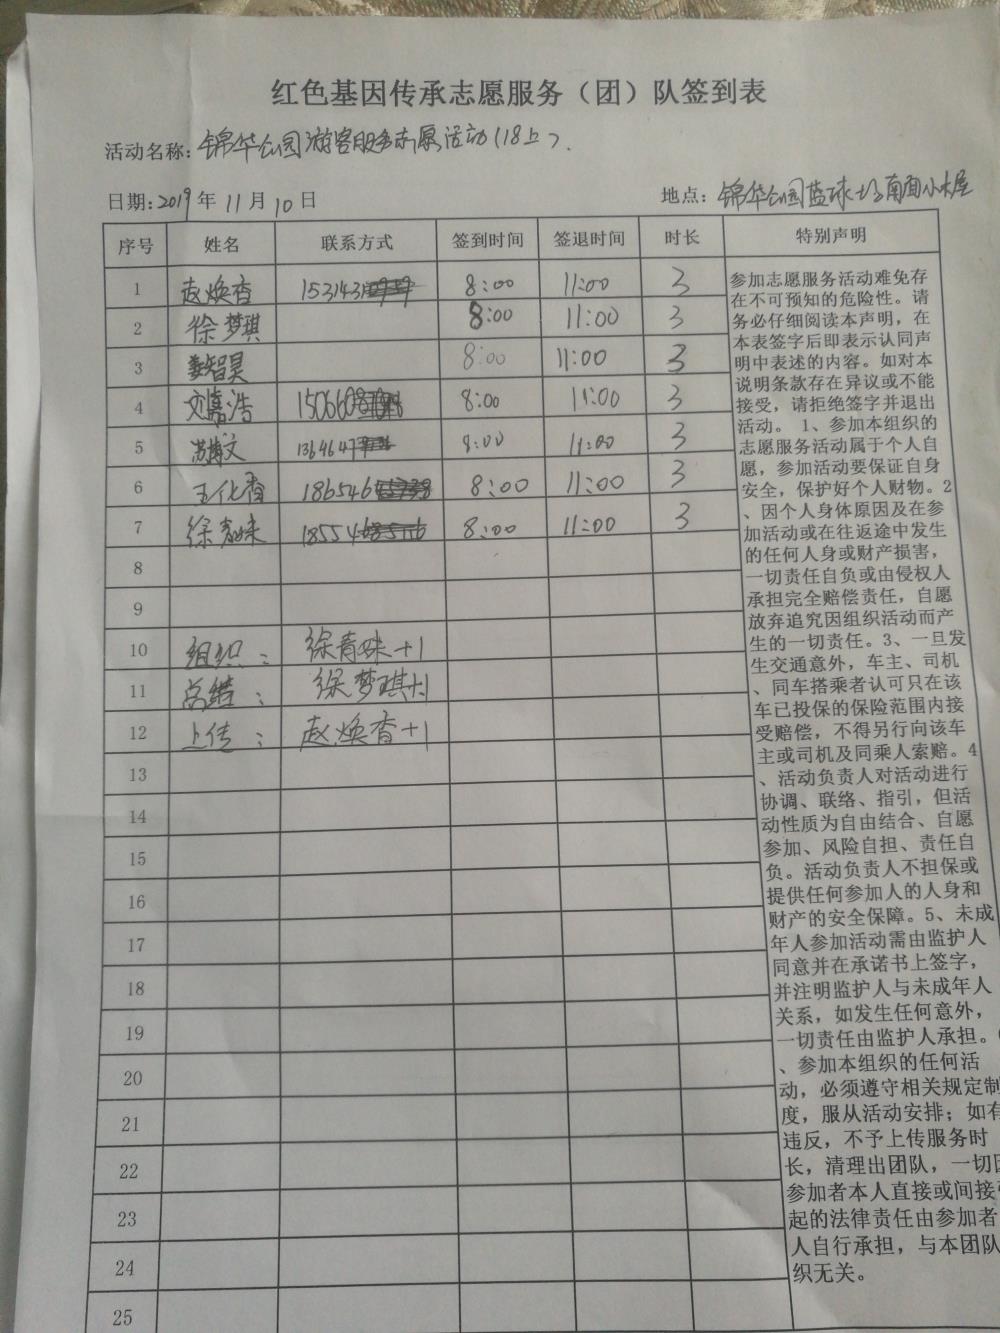 红色基因传承志愿服务（团）队签到表
活动名称：锦华公园游客服务志愿活动（18上）.
日期：2019年11月10日 地点：锦华公园篮球场南面小木屋
序号 姓名 联系方式 签到时间 签退时间 时长 特别声明
1 赵焕香 153143 8:00 11:00 3
2 徐梦琪 8:00 11:00 3
3 姜智昊 8:00 11:00 3
4 刘嘉浩 150660 8:00 11:00 3
5 苏博文 1364647 8:00 11:00 3
6 王化香 186546 8:00 11:00 3
7 徐青妹 18554 8:00 11:00 3
8
9
10 组织： 徐青妹+1
11 总结： 徐梦琪+1
12 上传： 赵焕香+1
13
14
15
16
17
18
19
20
21
22
23
24
25
参加志愿服务活动难免存
在不可预知的危险性。请
务必仔细阅读本声明，在
本表签字后即表示认同声
明中表述的内容。如对本
说明条款存在异议或不能
接受，请拒绝签字并退出
活动。 1、参加本组织的
志愿服务活动属于个人自
愿，参加活动要保证自身
安全，保护好个人财物。2
、因个人身体原因及在参
加活动或在往返途中发生
的任何人身或财产损害，
一切责任自负或由侵权人
承担完全赔偿责任，自愿
放弃追究因组织活动而产
生的一切责任。3、一旦发
生交通意外，车主、司机
、同车搭乘者认可只在该
车已投保的保险范围内接
受赔偿，不得另行向该车
主或司机及同乘人索赔。4
、活动负责人对活动进行
协调、联络、指引，但活
动性质为自由结合、自愿
参加、风险自担、责任自
负。活动负责人不担保或
提供任何参加人的人身和
财产的安全保障。5、未成
年人参加活动需由监护人
同意并在承诺书上签字，
并注明监护人与未成年人
关系，如发生任何意外，
一切责任由监护人承担。
、参加本组织的任何活
动，必须遵守相关规定制
度，服从活动安排；如有
违反，不予上传服务时
长，清理出团队，一切因
参加者本人直接或间接引
起的法律责任由参加者
人自行承担，与本团队
织无关。